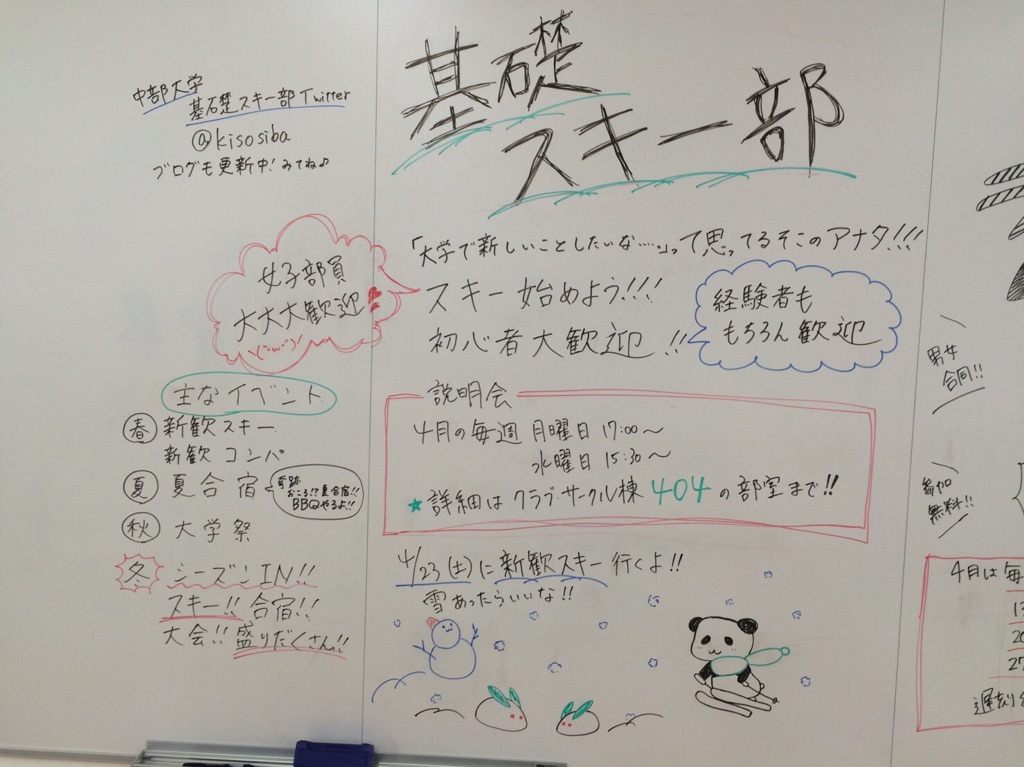 中部大学
基礎スキー部Twitter
@kisosiba
ブログも更新中!みてね♪
基礎
スキー部
「大学で新しいことしたいな……」って思ってるそこのアナタ!!!
スキー始めよう!!!
初心者大歓迎!!
経験者も
もちろん歓迎
女子部員
大大大歓迎
主なイベント
春 新歓スキー
新歓コンパ
夏 夏合宿
奇跡
おこる!?夏合宿!!
BBQやるよ!!
秋 大学祭
冬 シーズンIN!!
スキー!! 合宿!!
大会!! 盛りだくさん!!
説明会
4月の毎週 月曜日 17:00~
水曜日 15:30~
★詳細はクラブ・サークル棟404の部室まで!!
4/23(土)に新歓スキー行くよ!!
雪あったらいいな!!
男女
合同!!
参加
無料!!
4月は毎
遅刻